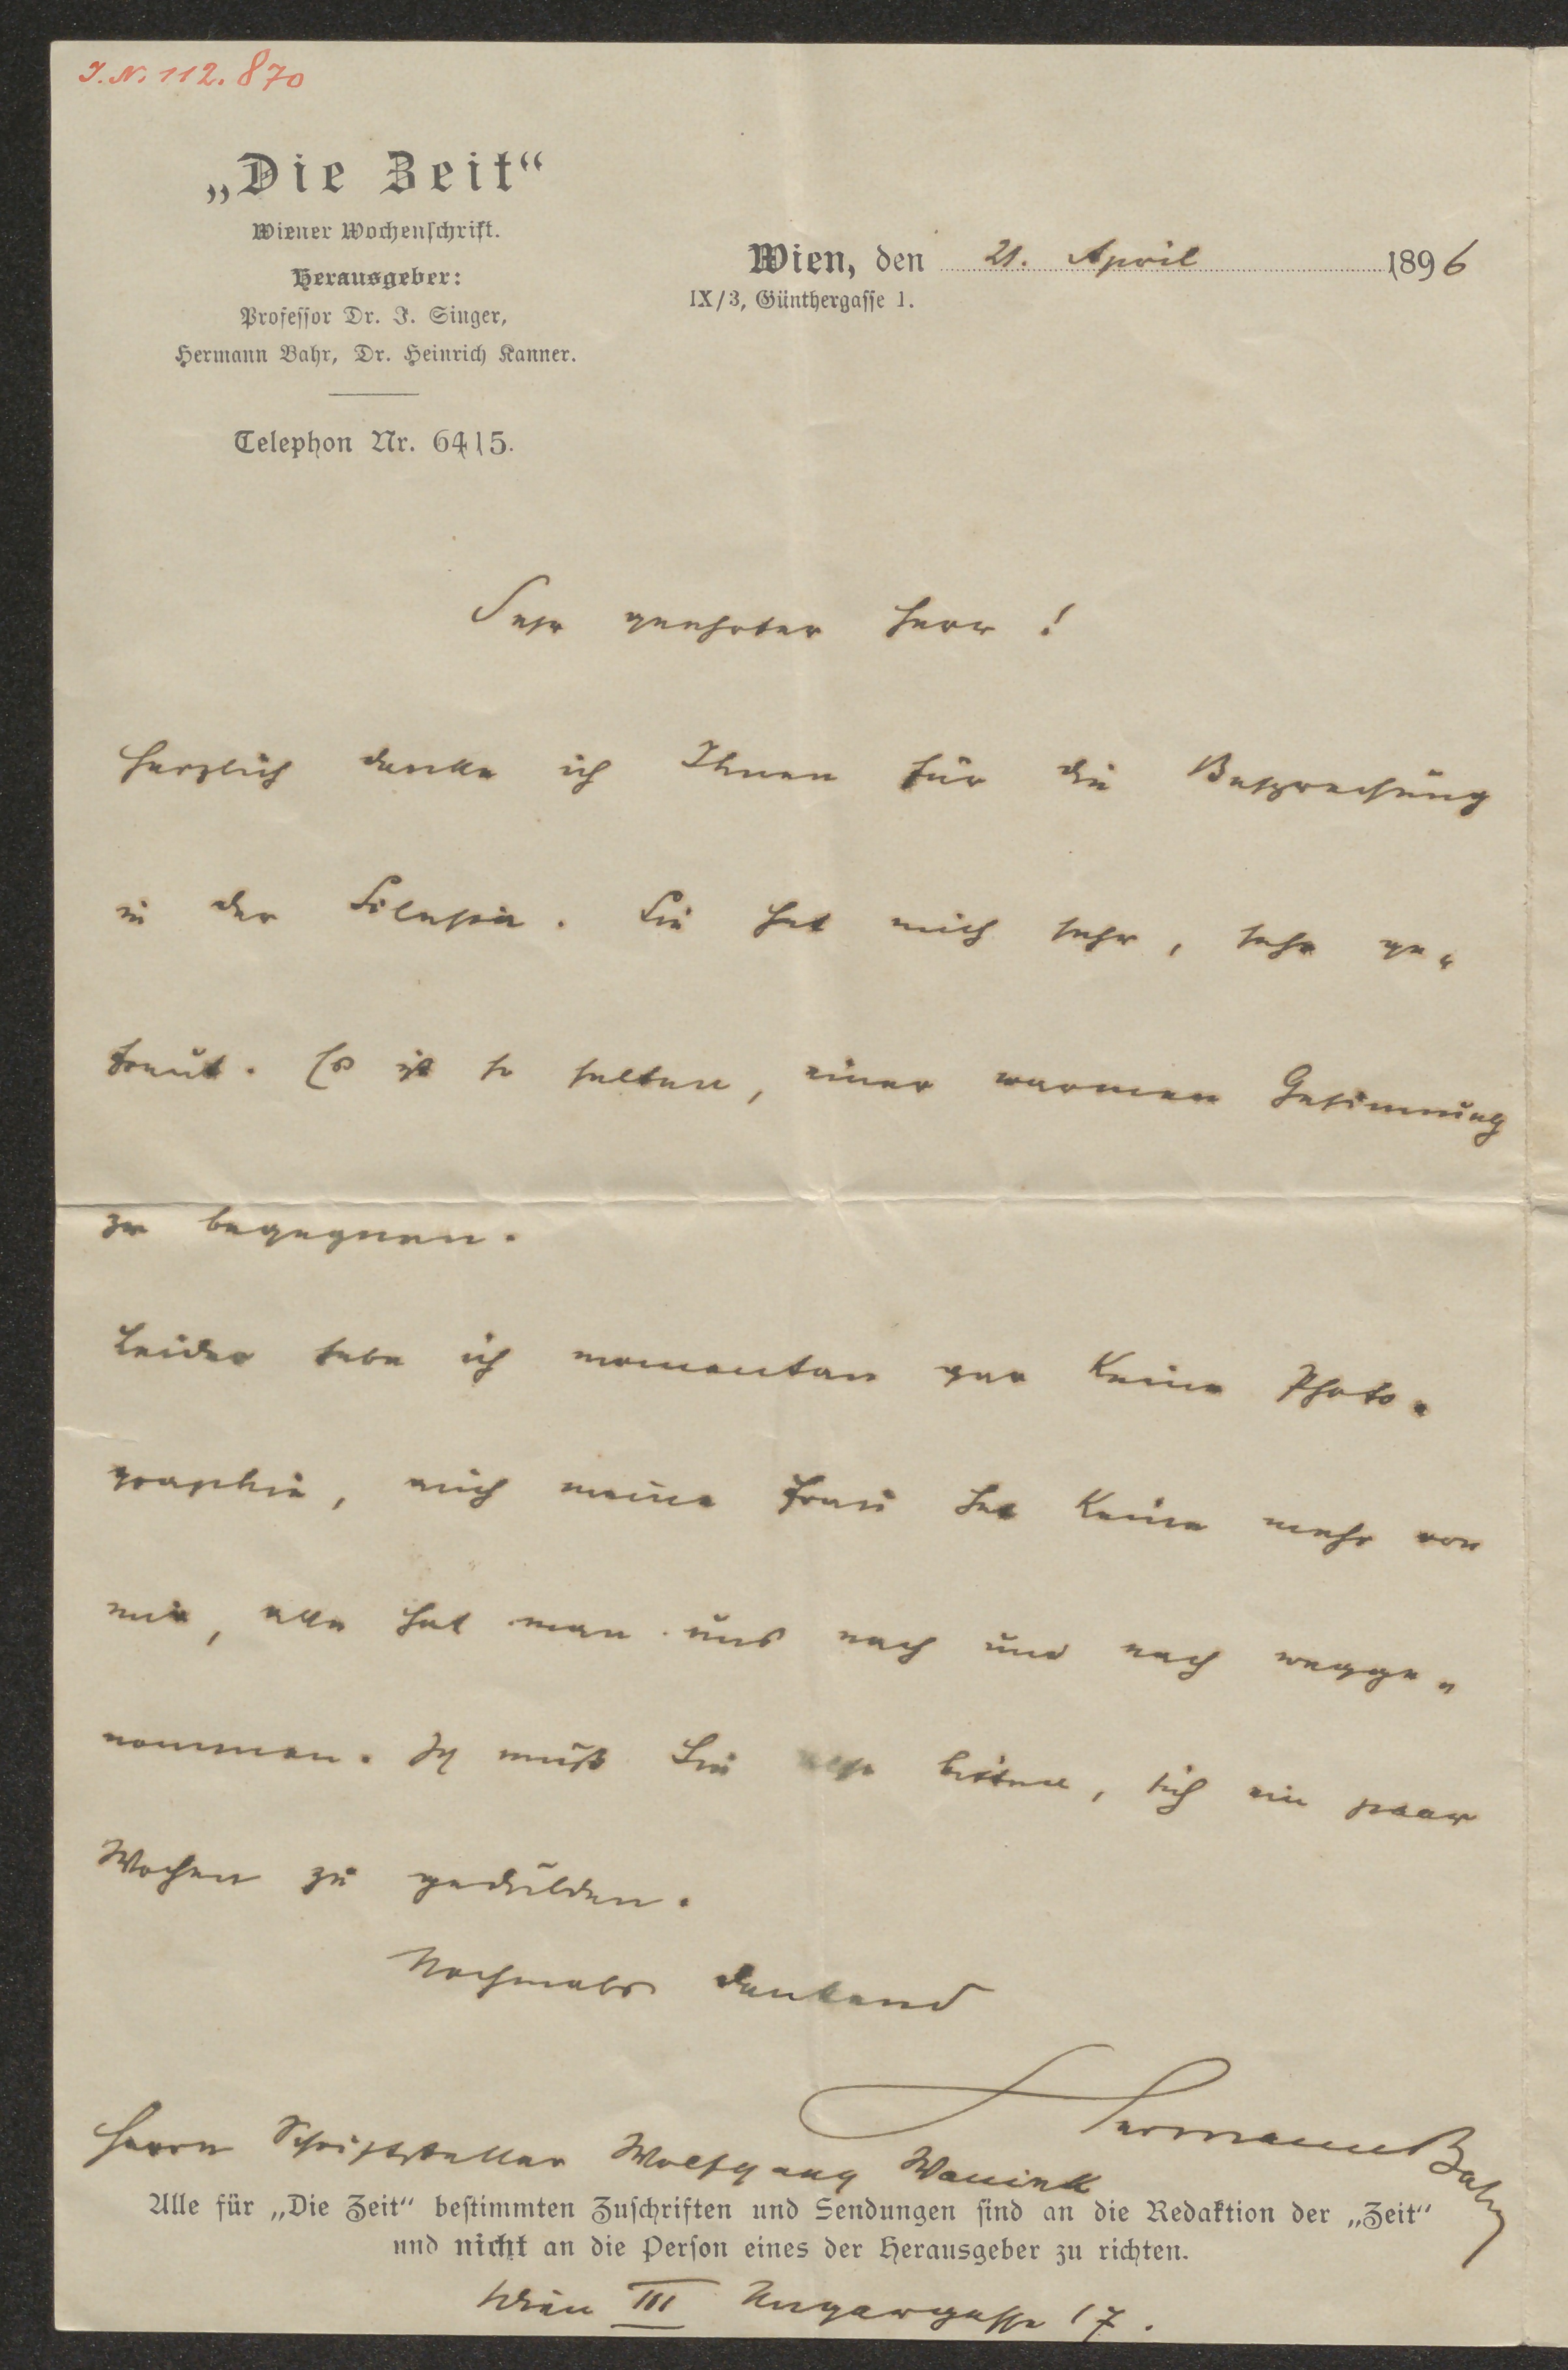 J. N. 112.870
„Die Zeit“
Wiener Wochenschrift.
Herausgeber:
Professor Dr. J. Singer,
Hermann Bahr, Dr. Heinrich Kanner.
Telephon Nr. 6415.
Wien, den 21. April 1896
IX/3, Günthergasse 1.
Sehr geehrter Herr!
Herzlich danke ich Ihnen für die Besprechung
in der Silesia. Sie hat mich sehr, sehr ge-
freut. Es ist so selten, einer warmen Gesinnung
zu begegnen.
Leider habe ich momentan gar keine Photo-
graphie, auch meine Frau hat keine mehr von
mir, alle hat man uns nach und nach wegge-
nommen. Ich muß Sie also bitten, sich ein paar
Wochen zu gedulden.
Nochmals dankend
Hermann Bahr
Herrn Schriftsteller Wolfgang
Alle für „Die Zeit“ bestimmten Zuschriften und Sendungen sind an die Redaktion der „Zeit“
und nicht an die Person eines der Herausgeber zu richten.
Wien III Ungargasse 17.